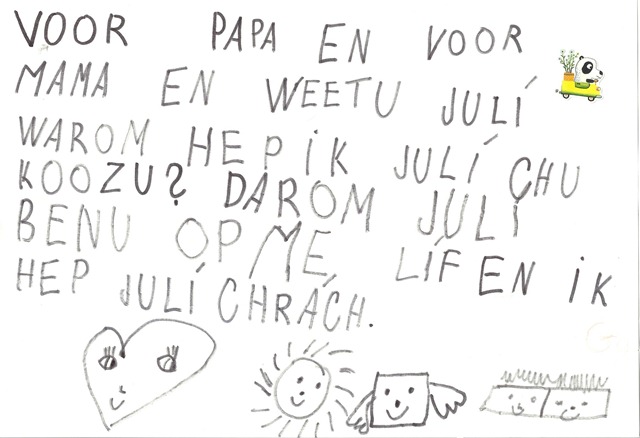 VOOR PAPA EN VOOR
MAMA EN WEETU JULÍ
WAROM HEP İK JULÍ CHU
KOOZU? DAROM JULI
BENU OP ME LÍF EN İK
HEP JULÍ CHRÁCH.